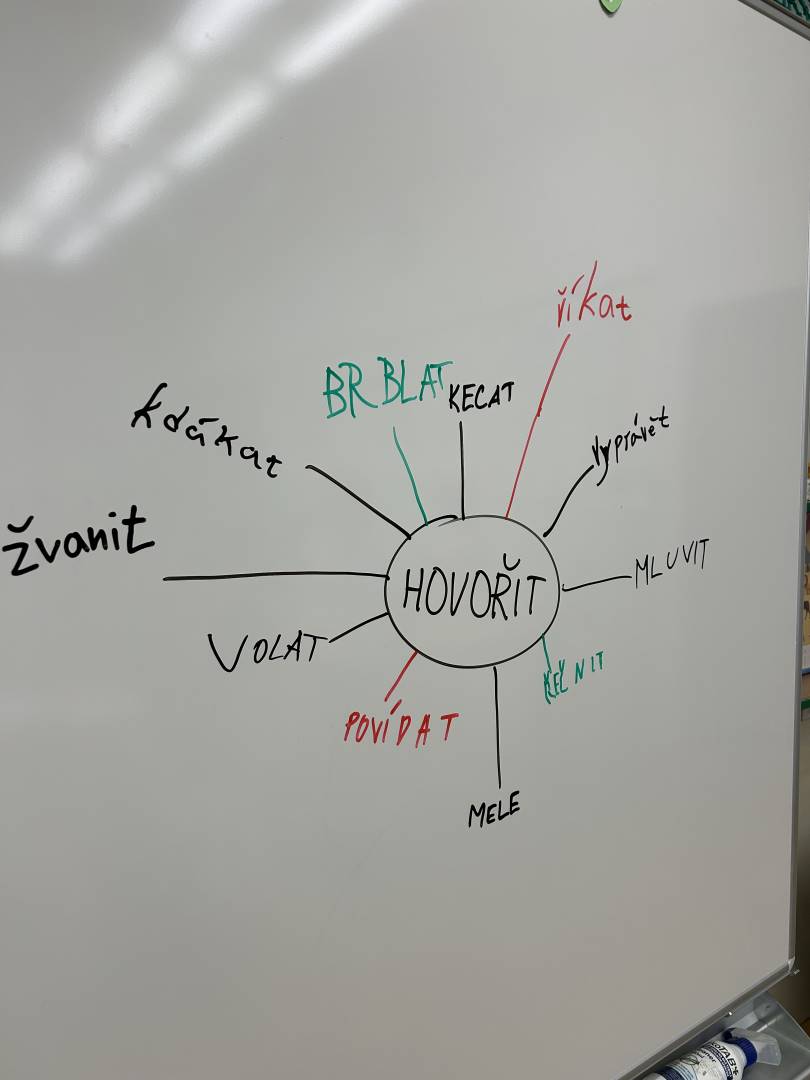 říkat
BRBLAT
KECAT
kdákat
vyprávět
žvanit
HOVOŘIT
MLUVIT
VOLAT
ŘEČNIT
POVÍDAT
MELE